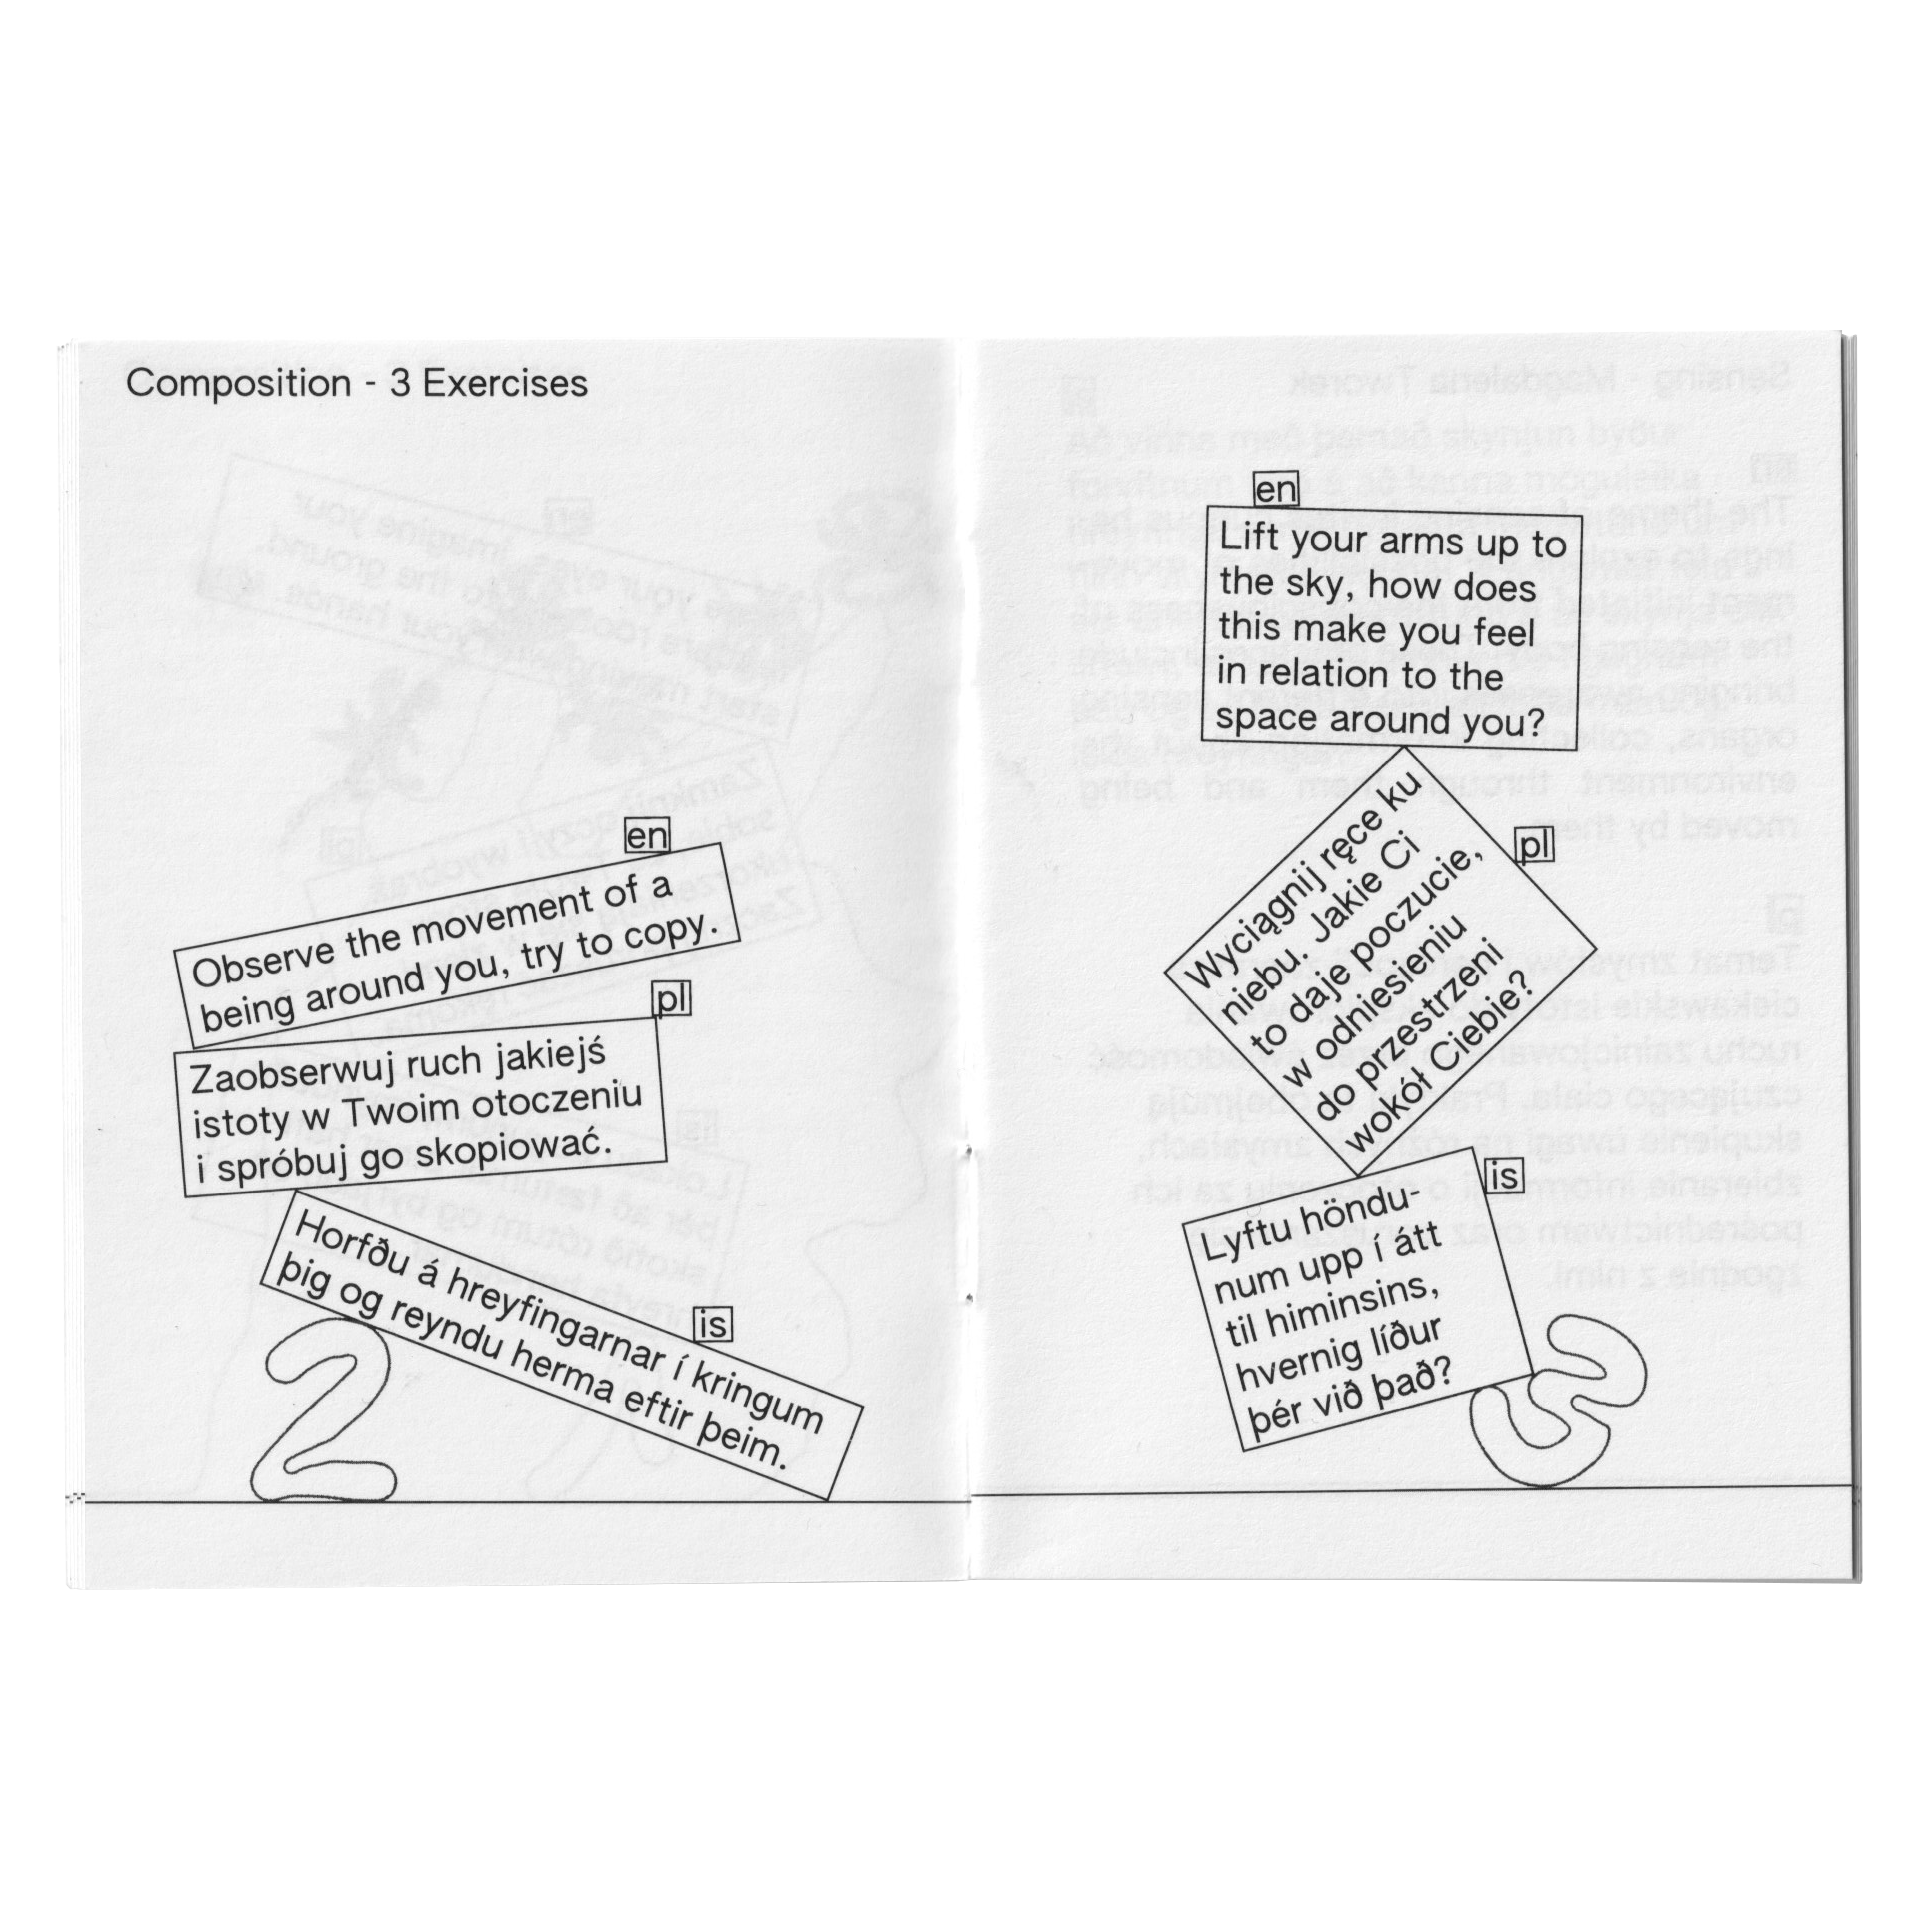 Composition - 3 Exercises
en
Observe the movement of a
being around you, try to copy.
pl
Zaobserwuj ruch jakiejś
istoty w Twoim otoczeniu
i spróbuj go skopiować.
is
Horfðu á hreyfingarnar í kringum
þig og reyndu herma eftir þeim.
2
en
Lift your arms up to
the sky, how does
this make you feel
in relation to the
space around you?
pl
Wyciągnij ręce ku
niebu. Jakie Ci
to daje poczucie,
w odniesieniu
do przestrzeni
wokół Ciebie?
is
Lyftu höndu-
num upp í átt
til himinsins,
hvernig líður
þér við það?
3